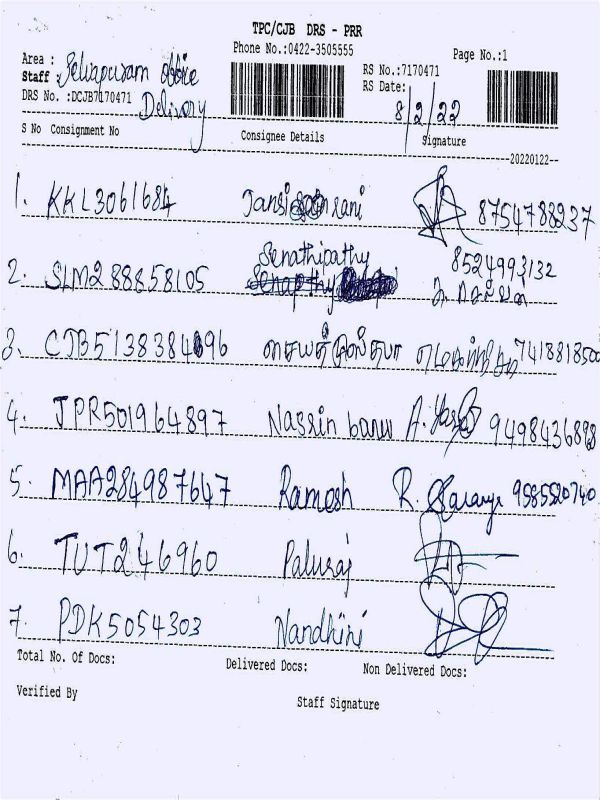 TPC/CJB DRS - PRR
Phone No.:0422-3505555
Page No.:1
Area :
Staff : Selvapuram Office
Delivery
RS No.:7170471
RS Date: 8/2/22
DRS No. :DCJB7170471
S No Consignment No Consignee Details Signature
20220122--
1. KKL3061684 Jansi rani 8754788237
2. SLM288858105 Senathipathy 8524993132
3. CJB513838496 7418818500
4. JPR501964897 Nassrin banu 9498436898
5. MAA284987647 Ramesh R. 9585520740
6. TUT246960 Paluraj
7. PDK5054303 Nandhini
Total No. Of Docs: Delivered Docs: Non Delivered Docs:
Verified By Staff Signature